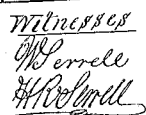 Witnesses
W Serrell
H R Serrell